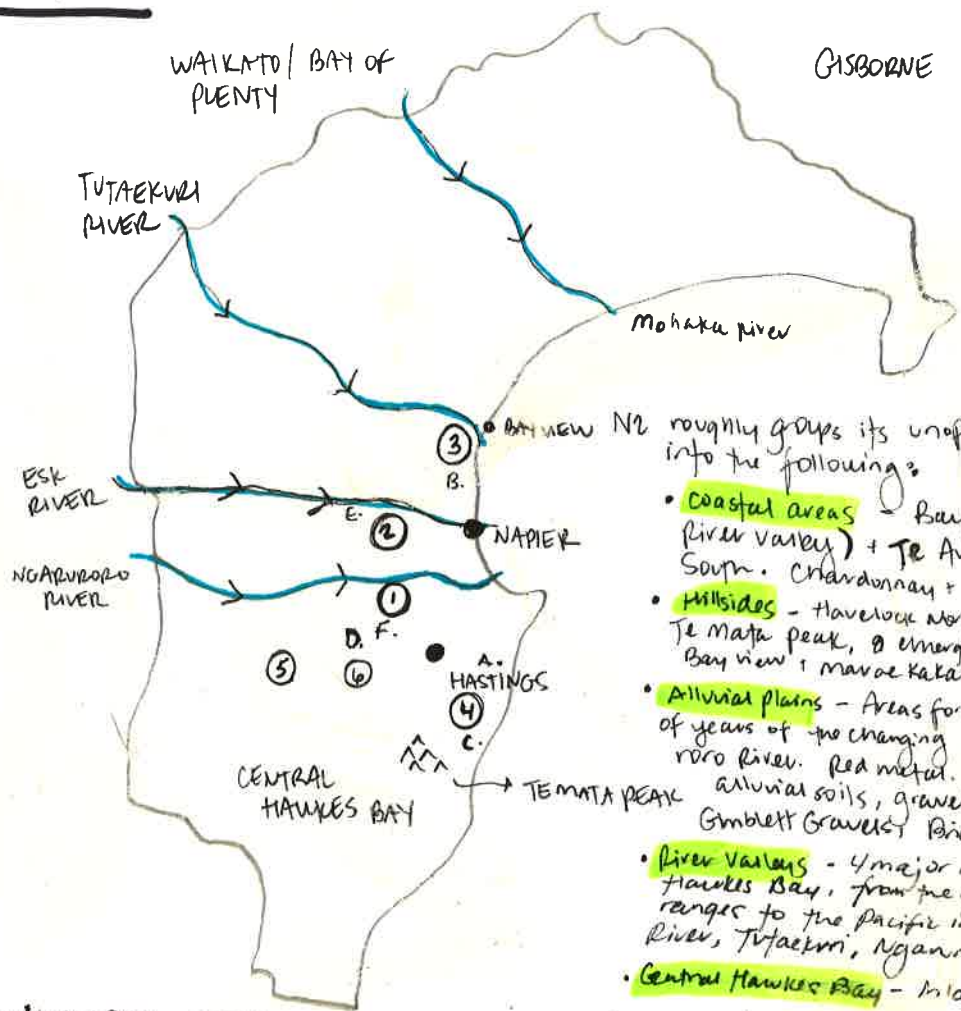 WAIKATO / BAY OF
PLENTY
GISBORNE
TUTAEKURI
RIVER
Mohaka River
BAYVIEW
3
B.
ESK
RIVER
E.
2
NAPIER
NGARURORO
RIVER
1
D. F.
5
6
A.
HASTINGS
4
C.
CENTRAL
HAWKES BAY
TEMATA PEAK
NZ roughly groups its
into the following:
• Coastal areas - Bay
River Valley) + Te Aw
South. Chardonnay +
• Hillsides - Havelock Nor
Te Mata peak, & emerg
Bay view & maraekaka
• Alluvial Plains - Areas for
of years of the changing
roro River. Red metal.
alluvial soils, grave
Gimblett Gravels, Bri
• River Valleys - 4 major
Hawkes Bay, from the
ranges to the Pacific in
River, Tutaekuri, Ngaru
• Central Hawkes Bay -